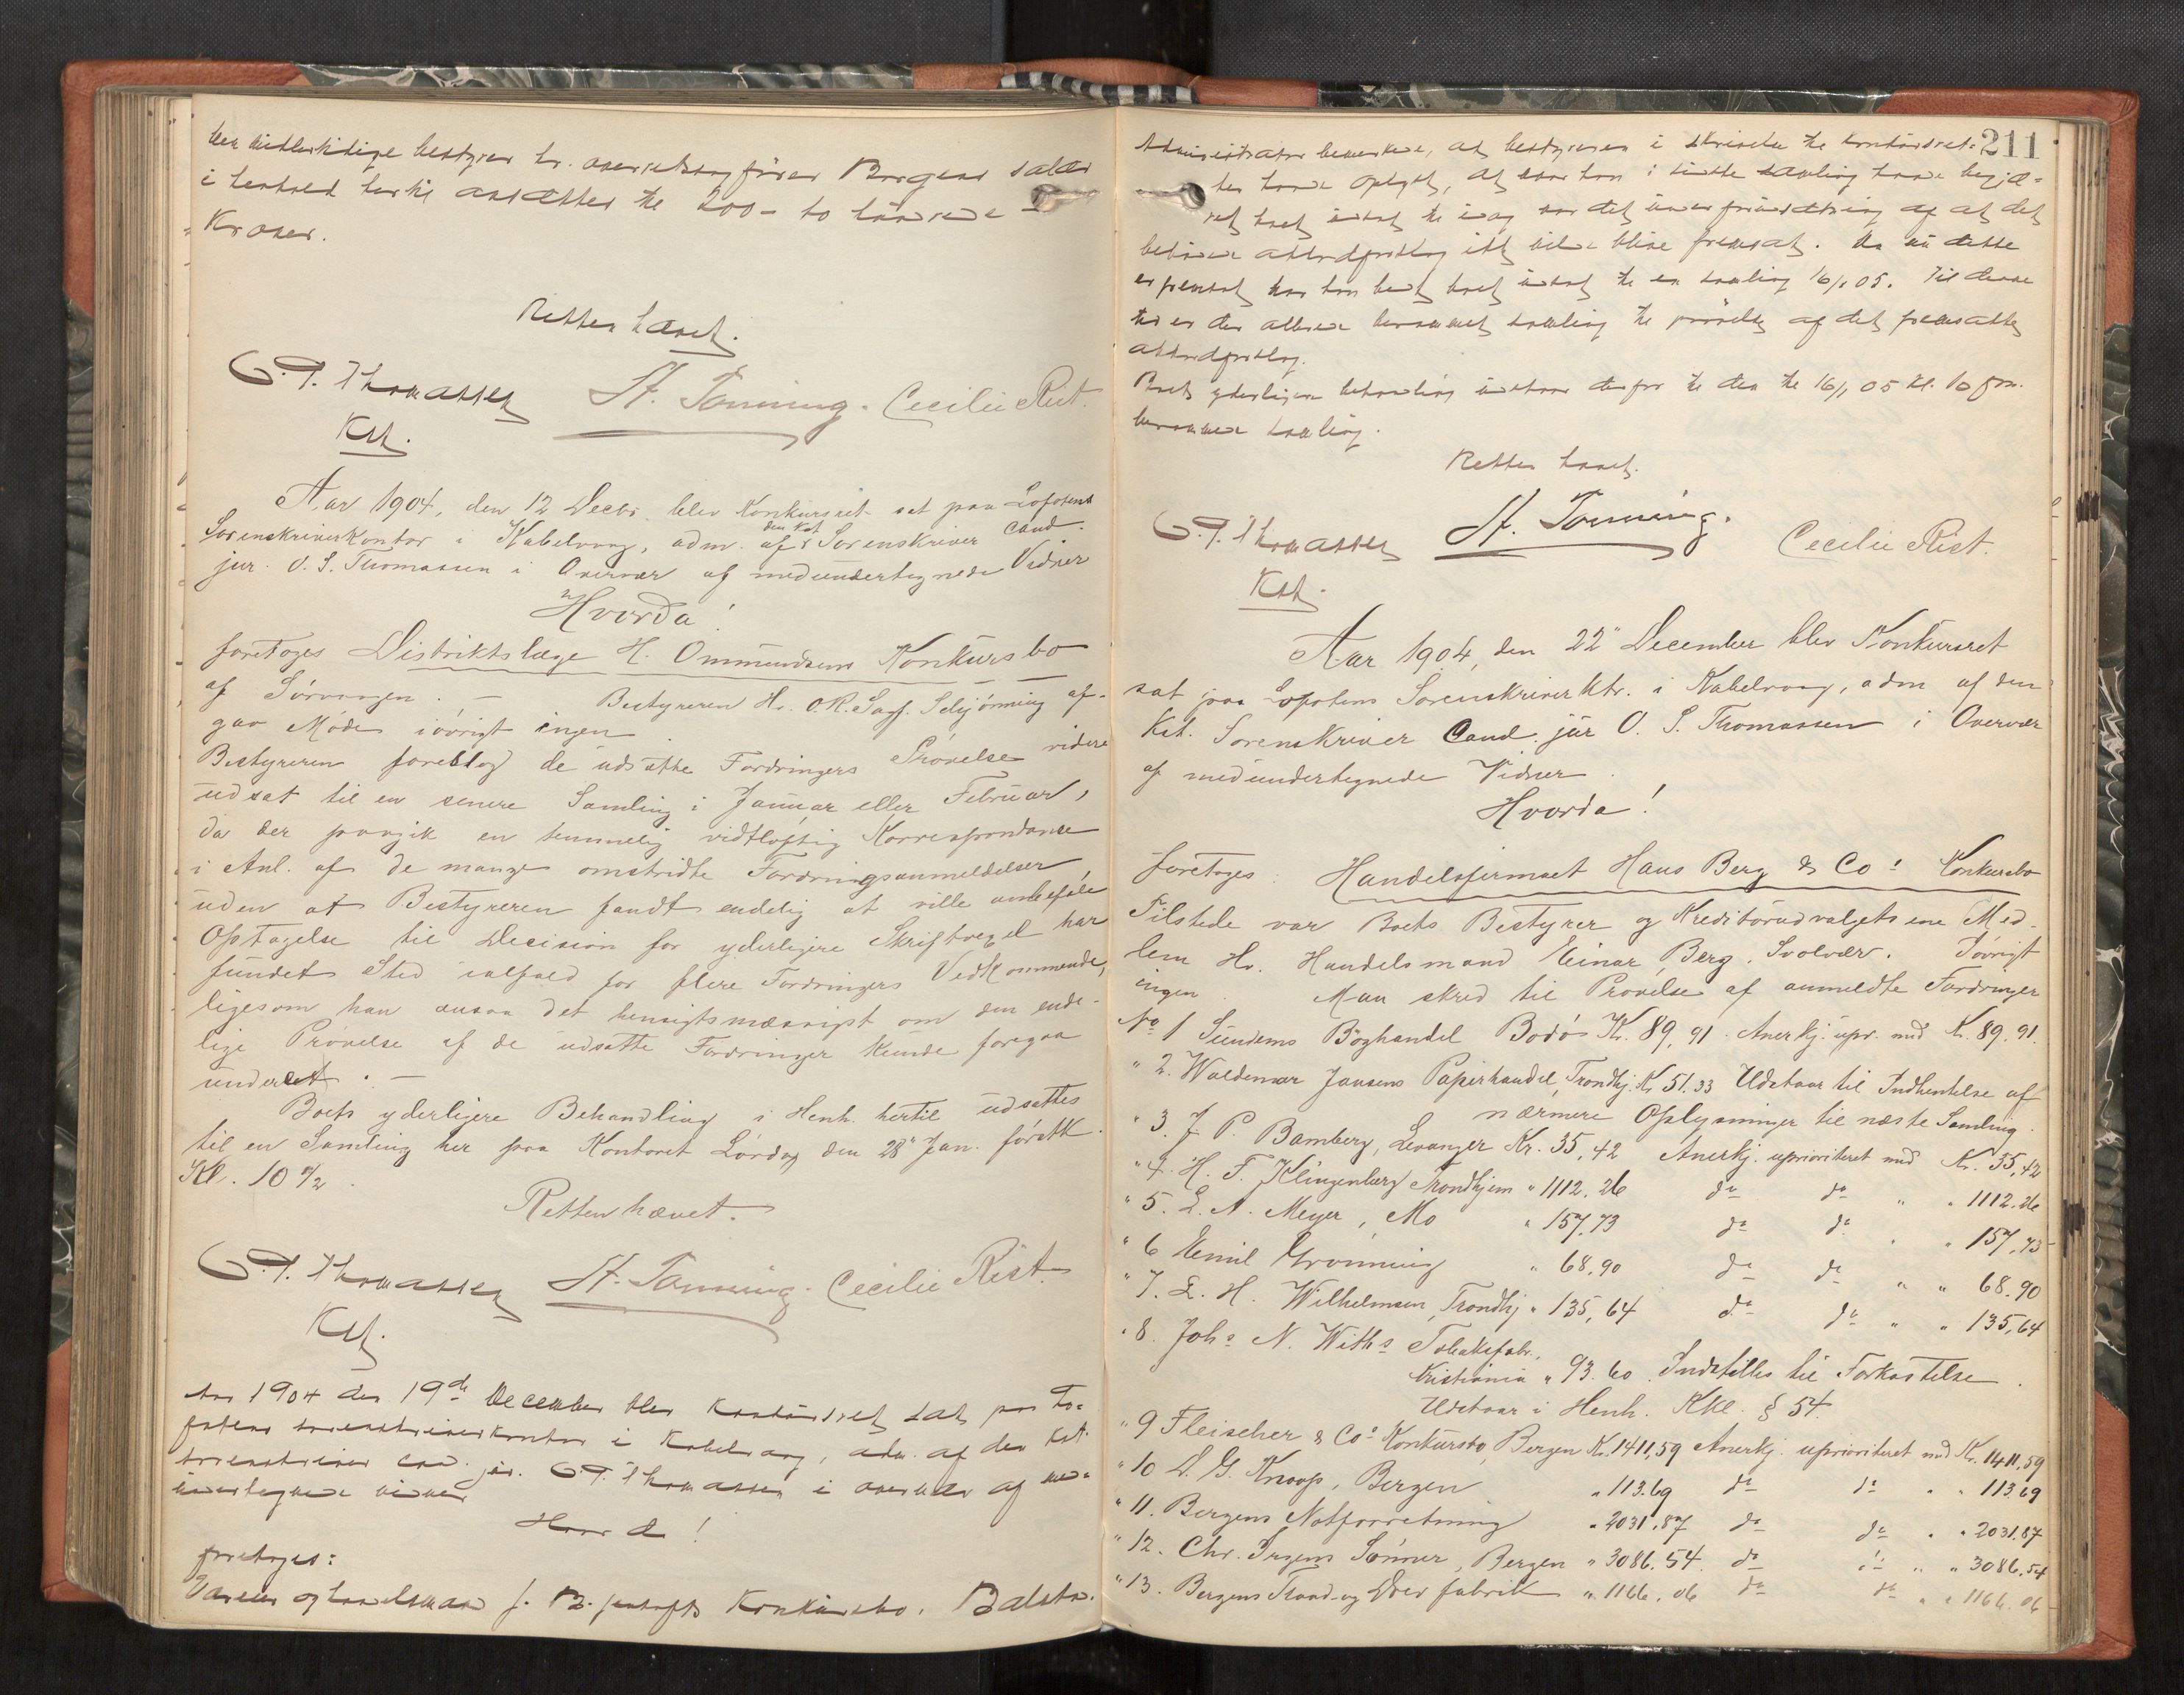 den midlertidige bestyrer hr. overretssagfører Borgens salær
i henhold hertil ansættes til 200 – to hundrede –
Kroner.
Retten hævet.
O. S. Thomassen St. Tønning. Cecilie Rist.
Kst.
Aar 1904, den 12 Decbr. blev Konkursret sat paa Lofotens
Sorenskriverkontor i Kabelvaag, adm. af den Kst. Sorenskriver Cand.
jur. O. S. Thomassen i Overvær af medundertegnede Vidner
Hvorda!
foretoges Distriktslæge H. Ommundsens Konkursbo
af Sørvaagen. – Bestyreren Hr. O.R.Sagf. Schjønning af-
gav Møde iøvrigt ingen.
Bestyreren foreslog de udsatte Fordringers Prøvelse videre
udsat til en senere Samling i Januar eller Februar,
da der paagik en temmelig vidtløftig Korrespondanse
i Anl. af de mange omstridte Fordringsanmeldelser
uden at Bestyreren fandt endelig at ville anbefale
Optagelse til Decision før yderligere Skriftvexel har
fundet Sted ialfald for flere Fordringers Vedkommende,
ligesom han ansaa det hensigtsmæssigst om den ende-
lige Prøvelse af de udsatte Fordringer kunde foregaa
underet. –
Boets yderligere Behandling i Henh. hertil udsattes
til en Samling her paa Kontoret Lørdag den 28" Jan. førstk.
Kl. 10 1/2.
Retten hævet.
O. S. Thomassen St. Tønning. Cecilie Rist.
Kst.
Aar 1904 den 19de December blev Konkursret sat paa Lo-
fotens sorenskriverkontor i Kabelvaag, adm. af den Kst.
sorenskriver cand. jur. O. S. Thomassen i overvær af med-
undertegnede vidner
Hvorda!
foretoges:
og handelsmand J. B. Konkursbo, Balstad.
211
Administrator bemærkede, at bestyreren i skrivelse til konkursret-
ten havde oplyst, at naar han i sidste samling havde begjæ-
ret boet udsat til idag var det under forudsætning af at det
bebudede akkordforslag ikke vilde blive fremsat. Da nu dette
er fremsat har han bedt boet udsat til en samling 16/1 05. Til denne
tid er der allerede berammet samling til prøvelse af det fremsatte
akkordforslag.
Boets yderligere behandling udstaar derfor til den til 16/1 05 kl. 10 fm.
berammede samling.
Retten hævet.
O. S. Thomassen St. Tønning. Cecilie Rist.
Kst.
Aar 1904, den 22" December blev Konkursret
sat paa Lofotens Sorenskriverktr. i Kabelvaag, adm af den
Kst. Sorenskriver Cand. jur O. S. Thomassen i Overvær
af medundertegnede Vidner.
Hvorda!
foretoges: Handelsfirmaet Hans Berg & Co: Konkursbo
Tilstede var Boets Bestyrer og Kreditorudvalgets ene Med-
lem Hr. Handelsmand Einar Berg, Svolvær. Iøvrigt
ingen. Man skred til Prøvelse af anmeldte Fordringer
No 1 Sundems Boghandel Bodø Kr. 89,91. Anerkj. upr. med Kr. 89.91.
" 2. Waldemar Jansens Papirhandel, Trondhj. Kr 51.33 Udstaar til Indhentelse af
nærmere Oplysninger til næste Samling.
" 3. J. P. Bamberg, Levanger Kr. 35,42 Anerkj. uprioriteret med Kr. 35,42
" 4. H. F. Klingenberg Trondhjem " 1112.26 do do " " 1112.26
" 5. L. A. Meyer, Mo " 157,73 do do " " 157,73
" 6 Emil Grønning " 68,90 do do " " 68.90
" 7. L. H. Wilhelmsen, Trondhj " 135,64 do do " " 135,64
" 8. Johs N. Withs Tobaksfabr.,
Kristiania " 93.60. Indstilles til Forkastelse.
Udstaar i Henh. Kkl. § 54.
" 9 Fleischer & Cos Konkursbo, Bergen Kr. 1411,59 Anerkj. uprioriteret med Kr. 1411,59
" 10 D. G. Knoop, Bergen " 113.69 do do " " 113.69
" 11. Bergens Notforretning " 2031,87 do do " " 2031.87
" 12. Chr. Irgens Sønner, Bergen " 3086.54 do do " " 3086,54
" 13. Bergens Traad- og Drev fabrik " 1166.06 do do " " 1166.06